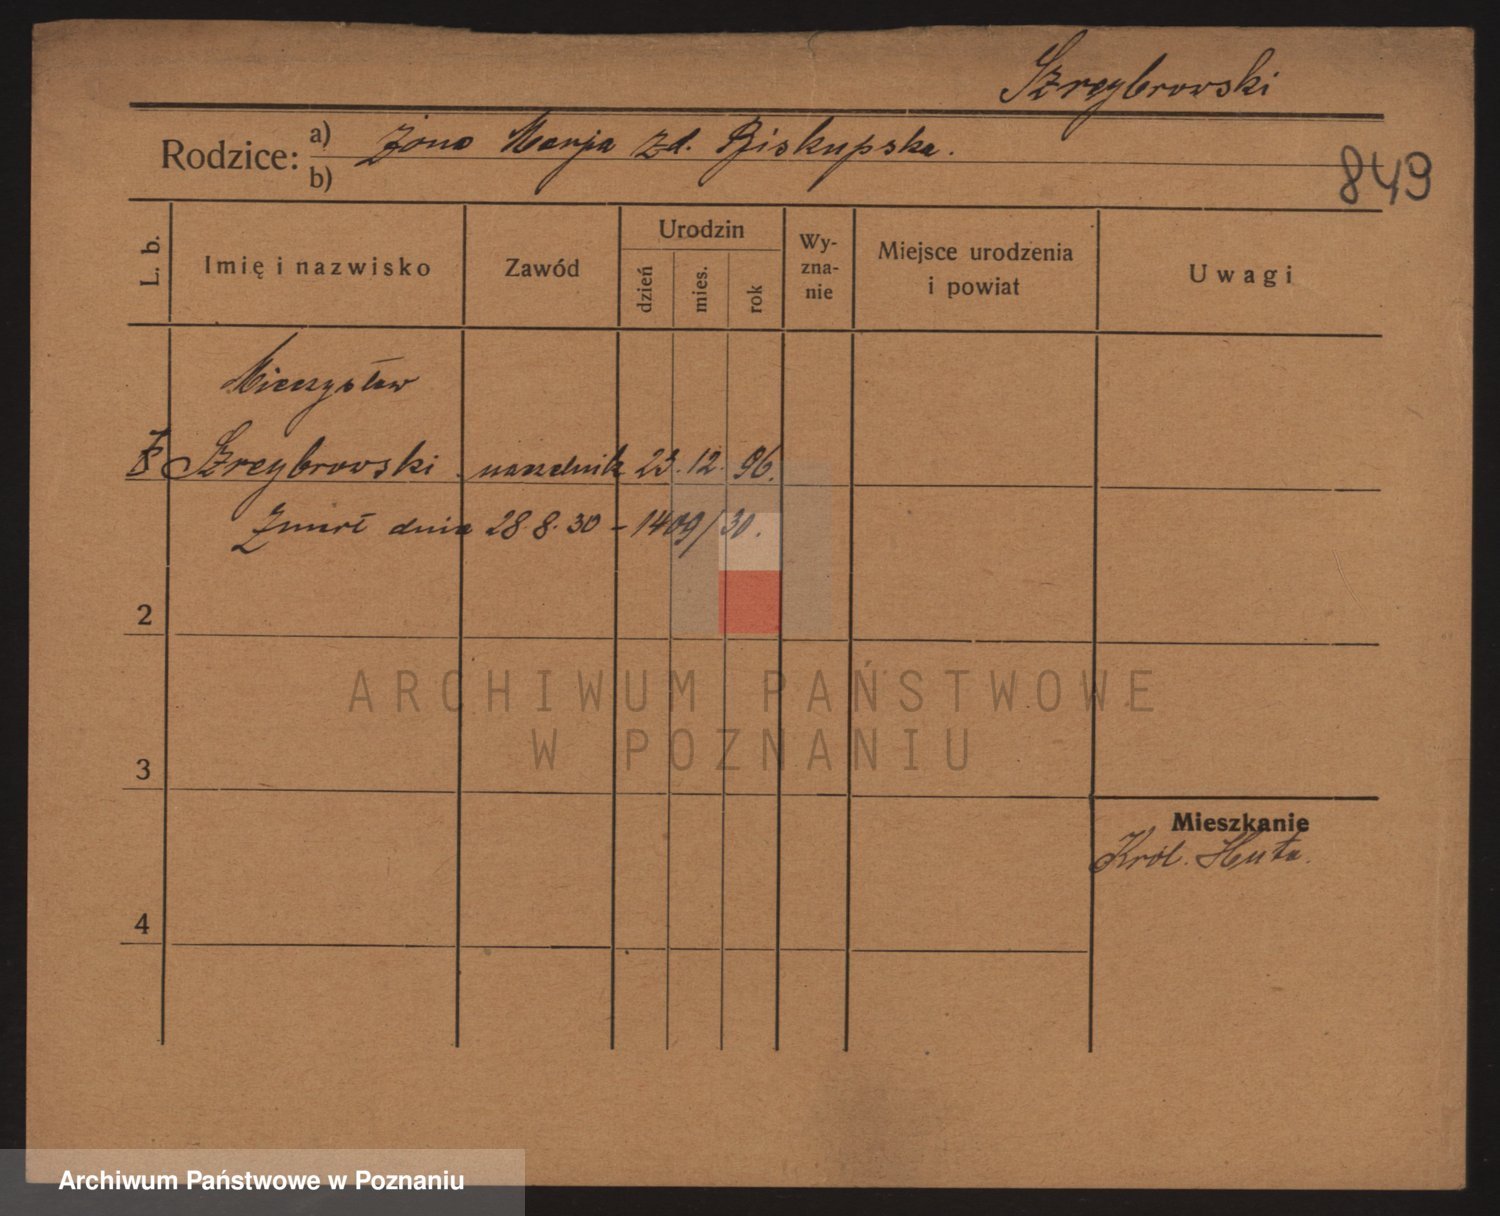 Szreybrowski
Rodzice: a) żona Marja zd. Biskupska.
b)
849
L. b.
Imię i nazwisko
Zawód
Urodzin
dzień
mies.
rok
Wy-
zna-
nie
Miejsce urodzenia
i powiat
Uwagi
Mieczysław
Szreybrowski naczelnik 23. 12. 96.
Zmarł dnia 28.8.30 - 1409/30.
2
3
4
Mieszkanie
Król. Huta.
ARCHIWUM PAŃSTWOWE
W POZNANIU
Archiwum Państwowe w Poznaniu